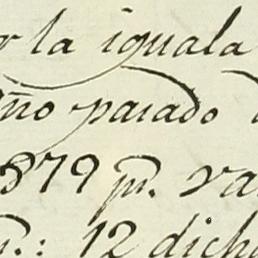 r la iguala
ño pasado
1879 pr. va
r.: 12 dicho